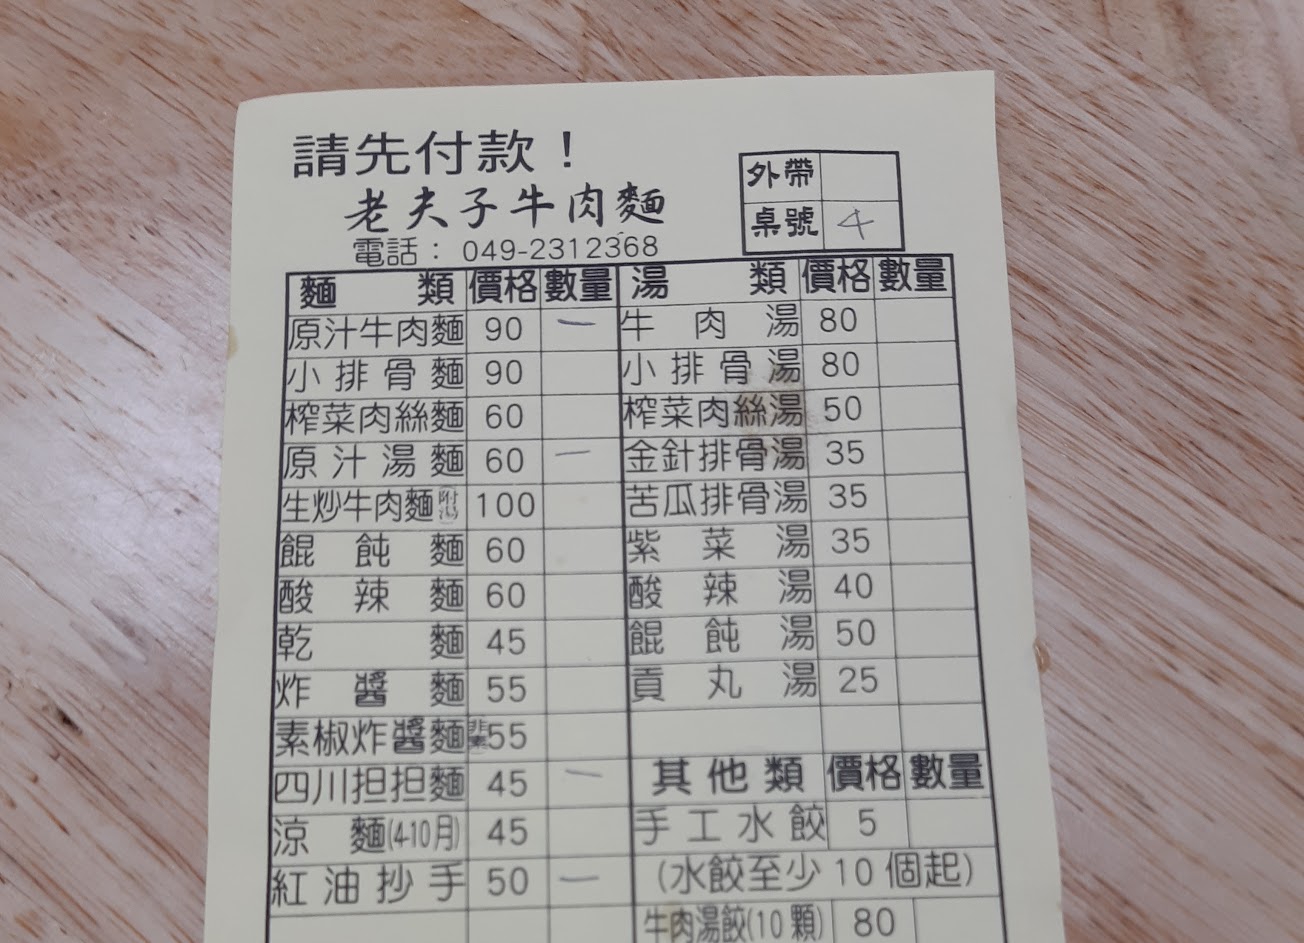 請先付款！
老夫子牛肉麵
電話： 049-2312368
外帶
桌號 4
麵類 價格 數量 湯類 價格 數量
原汁牛肉麵 90 一 牛肉湯 80
小排骨麵 90 小排骨湯 80
榨菜肉絲麵 60 榨菜肉絲湯 50
原汁湯麵 60 一 金針排骨湯 35
生炒牛肉麵(附湯) 100 苦瓜排骨湯 35
餛飩麵 60 紫菜湯 35
酸辣麵 60 酸辣湯 40
乾麵 45 餛飩湯 50
炸醬麵 55 貢丸湯 25
素椒炸醬麵(非素) 55
四川担担麵 45 一 其他類 價格 數量
涼麵(4-10月) 45 手工水餃 5
紅油抄手 50 一 (水餃至少10個起)
牛肉湯餃(10顆) 80